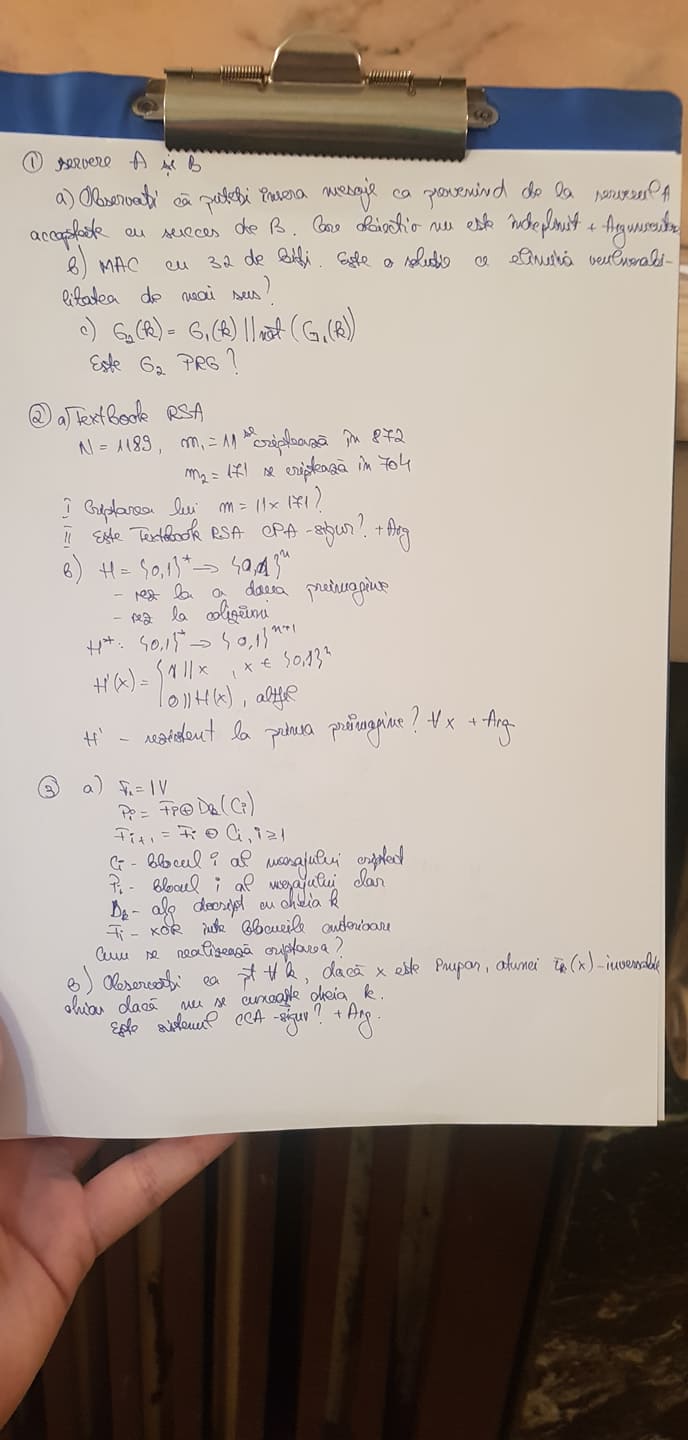 ① servere A și B
a) Observați că puteți insera mesaje ca provenind de la serverul A
acceptate cu succes de B. Care obiectiv nu este îndeplinit + Argumentare
b) MAC cu 32 de biți. Este o soluție ce elimină vulnerabi-
litatea de mai sus?
c) G₂(k) = G₁(k) || not (G₁(k))
Este G₂ PRG?
② a) Textbook RSA
N = 1189, m₁ = 11 se criptează în 872
m₂ = 171 se criptează în 704
I Criptarea lui m = 11 x 171?
II Este Textbook RSA CPA-sigur? + Arg
b) H = {0,1}* → {0,1}ⁿ
- rez la a doua preimagine
- rez la coliziuni
H*: {0,1}* → {0,1}ⁿ⁺¹
H'(x) = { 1 || x , x ∈ {0,1}ⁿ
0 || H(x), altfel
H' - rezistent la prima preimagine? ∀x + Arg
③ a) F₁ = IV
Pi = Fi ⊕ Dk(Ci)
Fi+1 = Fi ⊕ Ci, i ≥ 1
Ci - blocul i al mesajului criptat
Pi - blocul i al mesajului clar
Dk - alg decript cu cheia k
Fi - XOR între blocurile anterioare
Cum se realizează criptarea?
b) Observați ca ∀ k, dacă x este impar, atunci Fk(x) - inversabilă
chiar dacă nu se cunoaște cheia k.
Este sistemul CCA-sigur? + Arg.